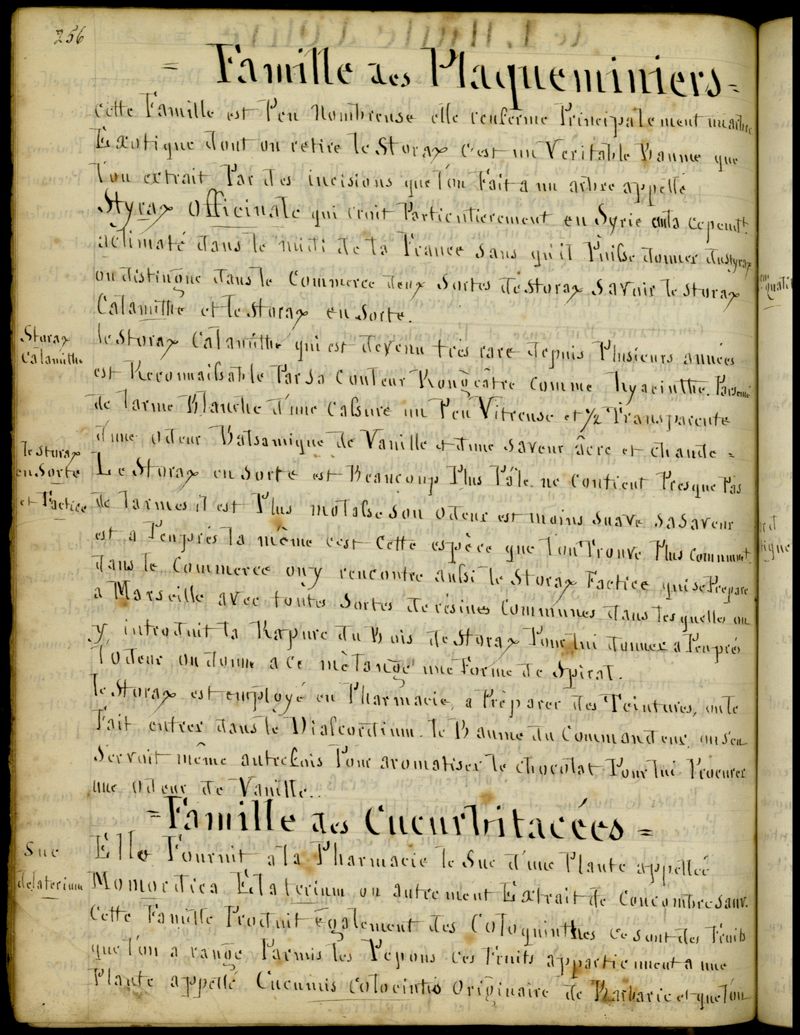 256
= Famille des Plaqueminiers =
Cette Famille est Peu Nombreuse elle renferme Principalement un arbre
Exotique dont on retire le Storax C'est un Veritable Baume que
l'on extrait Par des incisions que l'on Fait a un arbre appellé
Styrax Officinale qui croit Particulierement en Syrie cela cependt
aclimaté dans le midi de la France sans qu'il Puisse donner du Styrax
on distingue dans le Commerce deux Sortes de Storax Savoir le storax
Calamitte et le storax en Sorte.
Storax
Calamitte
le Storax Calamitte qui est devenu très rare depuis Plusieurs années
est Reconnaissable Par sa Couleur Rougeâtre Comme hyacinthe. Parsemé
de larme Blanche d'une Cassure un Peu Vitreuse et 1/2 Transparente
d'une odeur Balsamique de Vanille et d'une saveur âcre et chaude =
le Storax
en Sorte
et Factice
Le Storax en Sorte est Beaucoup Plus Pâle. ne Contient Presque Pas
de larmes il est Plus molasse son odeur est moins suave sa saveur
est a Peu près la même c'est Cette espèce que l'on Trouve Plus Communmt
dans le Commerce on y rencontre aussi le Storax Factice qui se Prepare
a Marseille avec toutes Sortes de résines Communes dans lesquelles on
y introduit la Rapure du Bois de Storax Pour lui donner a Peu près
l'odeur on donne a ce mélange une Forme de Spiral.
le Storax est employé en Pharmacie, a Préparer des Teintures, on le
Fait entrer dans le Diascordium. le Baume du Commandeur. on s'en
Servait même autrefois Pour aromatiser le chocolat Pour lui Procurer
une odeur de Vanille..
= Famille des Cucurbitacées =
Suc
d'elaterium
Elle Fournit a la Pharmacie le Suc d'une Plante appellée
Momordica Elaterium ou autrement Extrait de Concombre sauv.
Cette Famille Produit également des Coloquinthes ce sont des Fruits
que l'on a rangé Parmis les Pepons ces Fruits appartiennent a une
Plante appellé Cucumis Colocintis Originaire de Barbarie et que l'on